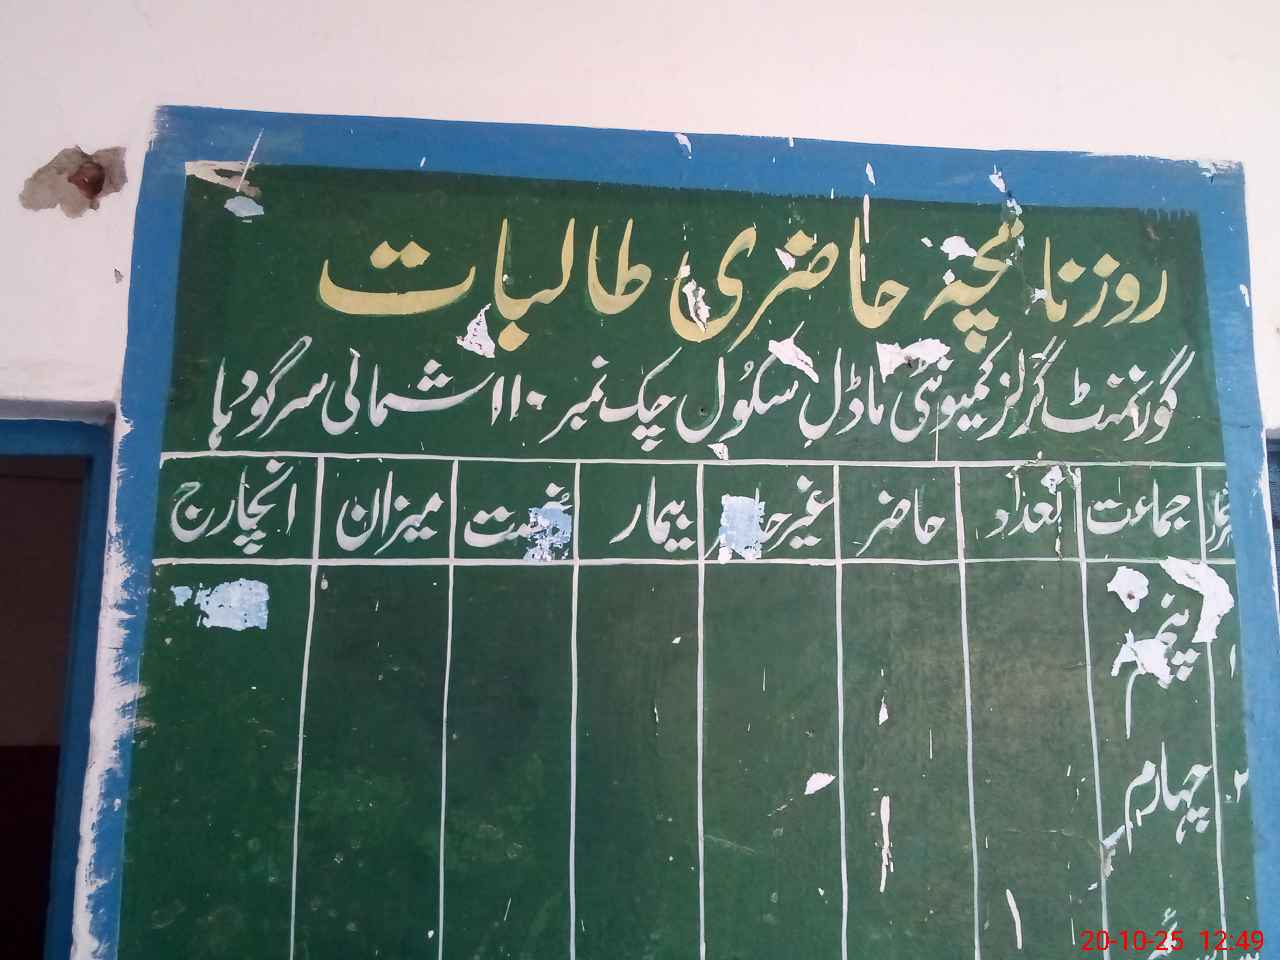 روزنامچہ حاضری طالبات
گورنمنٹ گرلز کمیونٹی ماڈل سکول چک نمبر ۱۱۰ شمالی سرگودہا
جماعت تعداد حاضر غیر حاضر بیمار رخصت میزان انچارج
۱ پنجم
۲ چہارم
۱
20-10-25 12:49